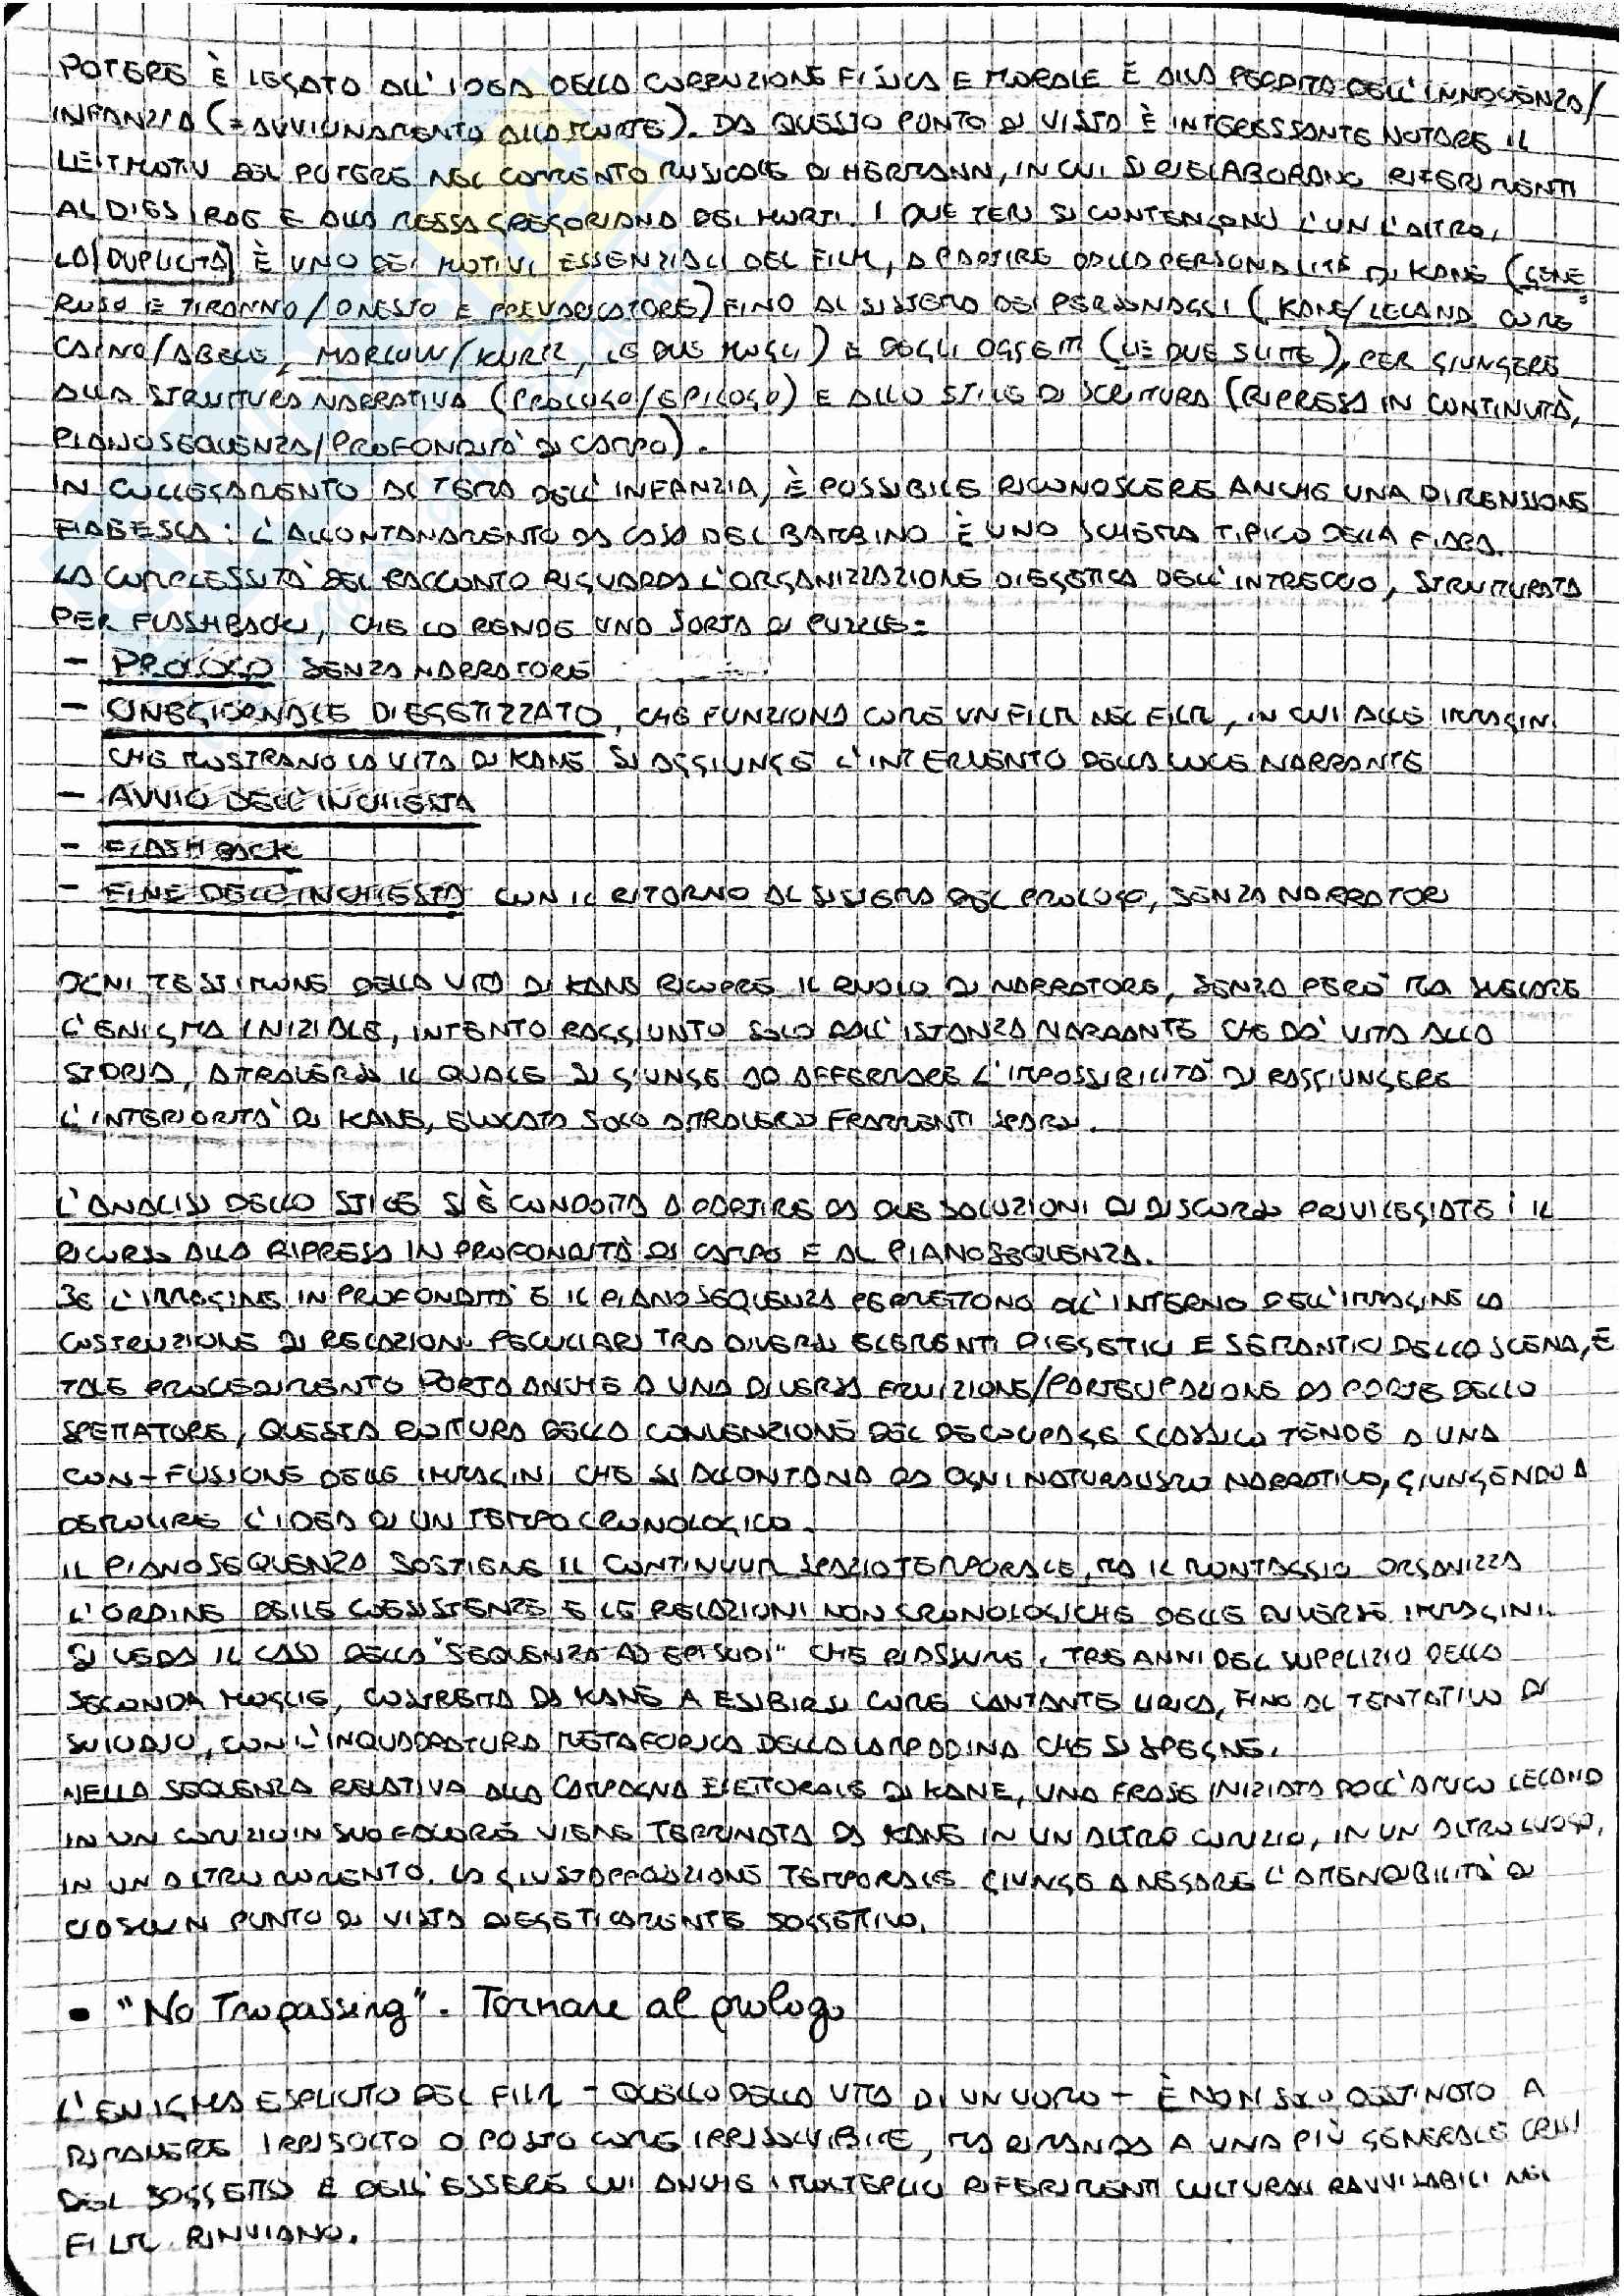 POTERE È LEGATO ALL'IDEA DELLA CORRUZIONE FISICA E MORALE E ALLA PERDITA DELL'INNOCENZA/
INFANZIA (= AVVICINAMENTO ALLA MORTE). DA QUESTO PUNTO DI VISTA È INTERESSANTE NOTARE IL
LEITMOTIV DEL POTERE NEL COMMENTO MUSICALE DI HERMANN, IN CUI SI RIELABORANO RIFERIMENTI
AL DIES IRAE E ALLA MESSA GREGORIANA DEI MORTI. I DUE TEMI SI CONTENGONO L'UN L'ALTRO.
LA DUPLICITÀ È UNO DEI MOTIVI ESSENZIALI DEL FILM, A PARTIRE DALLA PERSONALITÀ DI KANE (GENE=
ROSO E TIRANNO/ONESTO E PREVARICATORE) FINO AL SISTEMA DEI PERSONAGGI (KANE/LELAND COME
CAINO/ABELE, MARLOW/KURTZ, LE DUE MOGLI) E DEGLI OGGETTI (LE DUE SLITTE), PER GIUNGERE
ALLA STRUTTURA NARRATIVA (PROLOGO/EPILOGO) E ALLO STILE DI SCRITTURA (RIPRESA IN CONTINUITÀ,
PIANOSEQUENZA/PROFONDITÀ DI CAMPO).
IN COLLEGAMENTO AL TEMA DELL'INFANZIA, È POSSIBILE RICONOSCERE ANCHE UNA DIMENSIONE
FIABESCA: L'ALLONTANAMENTO DA CASA DEL BAMBINO È UNO SCHEMA TIPICO DELLA FIABA.
LA COMPLESSITÀ DEL RACCONTO RIGUARDA L'ORGANIZZAZIONE DIEGETICA DELL'INTRECCIO, STRUTTURATA
PER FLASHBACK, CHE LO RENDE UNA SORTA DI PUZZLE:
- PROLOGO SENZA NARRATORE
- CINEGIORNALE DIEGETIZZATO, CHE FUNZIONA COME UN FILM NEL FILM, IN CUI ALLE IMMAGINI
CHE MOSTRANO LA VITA DI KANE SI AGGIUNGE L'INTERVENTO DELLA VOCE NARRANTE
- AVVIO DELL'INCHIESTA
- FLASHBACK
- FINE DELL'INCHIESTA CON IL RITORNO AL SISTEMA DEL PROLOGO, SENZA NARRATORI
OGNI TESTIMONE DELLA VITA DI KANE RICOPRE IL RUOLO DI NARRATORE, SENZA PERÒ MA SVELARE
L'ENIGMA INIZIALE, INTENTO RAGGIUNTO SOLO DALL'ISTANZA NARRANTE CHE DÀ VITA ALLA
STORIA, ATTRAVERSO IL QUALE SI GIUNGE AD AFFERMARE L'IMPOSSIBILITÀ DI RAGGIUNGERE
L'INTERIORITÀ DI KANE, EVOCATA SOLO ATTRAVERSO FRAMMENTI SPARSI.
L'ANALISI DELLO STILE SI È CONDOTTA A PARTIRE DA DUE SOLUZIONI DI DISCORSO PRIVILEGIATE: IL
RICORSO ALLA RIPRESA IN PROFONDITÀ DI CAMPO E AL PIANOSEQUENZA.
SE L'IMMAGINE IN PROFONDITÀ E IL PIANOSEQUENZA PERMETTONO ALL'INTERNO DELL'IMMAGINE LA
COSTRUZIONE DI RELAZIONI PECULIARI TRA DIVERSI ELEMENTI DIEGETICI E SEMANTICI DELLA SCENA, E
TALE PROCEDIMENTO PORTA ANCHE A UNA DIVERSA FRUIZIONE/PARTECIPAZIONE DA PARTE DELLO
SPETTATORE, QUESTA ROTTURA DELLA CONVENZIONE DEL DECOUPAGE CLASSICO TENDE A UNA
CON-FUSIONE DELLE IMMAGINI CHE SI ALLONTANA DA OGNI NATURALISMO NARRATIVO, GIUNGENDO A
DEMOLIRE L'IDEA DI UN TEMPO CRONOLOGICO.
IL PIANOSEQUENZA SOSTIENE IL CONTINUUM SPAZIOTEMPORALE, MA IL MONTAGGIO ORGANIZZA
L'ORDINE DELLE COESISTENZE E LE RELAZIONI NON CRONOLOGICHE DELLE DIVERSE IMMAGINI.
SI VEDA IL CASO DELLA "SEQUENZA AD EPISODI" CHE RIASSUME I TRE ANNI DEL SUPPLIZIO DELLA
SECONDA MOGLIE, COSTRETTA DA KANE A ESIBIRSI COME CANTANTE LIRICA, FINO AL TENTATIVO DI
SUICIDIO, CON L'INQUADRATURA METAFORICA DELLA LAMPADINA CHE SI SPEGNE.
NELLA SEQUENZA RELATIVA ALLA CAMPAGNA ELETTORALE DI KANE, UNA FRASE INIZIATA DALL'AMICO LELAND
IN UN COMIZIO IN SUO FAVORE VIENE TERMINATA DA KANE IN UN ALTRO COMIZIO, IN UN ALTRO LUOGO,
IN UN ALTRO MOMENTO. LA GIUSTAPPOSIZIONE TEMPORALE GIUNGE A NEGARE L'ATTENDIBILITÀ DI
CIASCUN PUNTO DI VISTA DIEGETICAMENTE SOGGETTIVO.
• "No Trepassing". Tornare al prologo
L'ENIGMA ESPLICITO DEL FILM - QUELLO DELLA VITA DI UN UOMO - È NON SOLO DESTINATO A
RIMANERE IRRISOLTO O POSTO COME IRRISOLVIBILE, MA RIMANDA A UNA PIÙ GENERALE CRISI
DEL SOGGETTO E DELL'ESSERE CUI ANCHE I MOLTEPLICI RIFERIMENTI CULTURALI RAVVISABILI NEL
FILM RINVIANO.